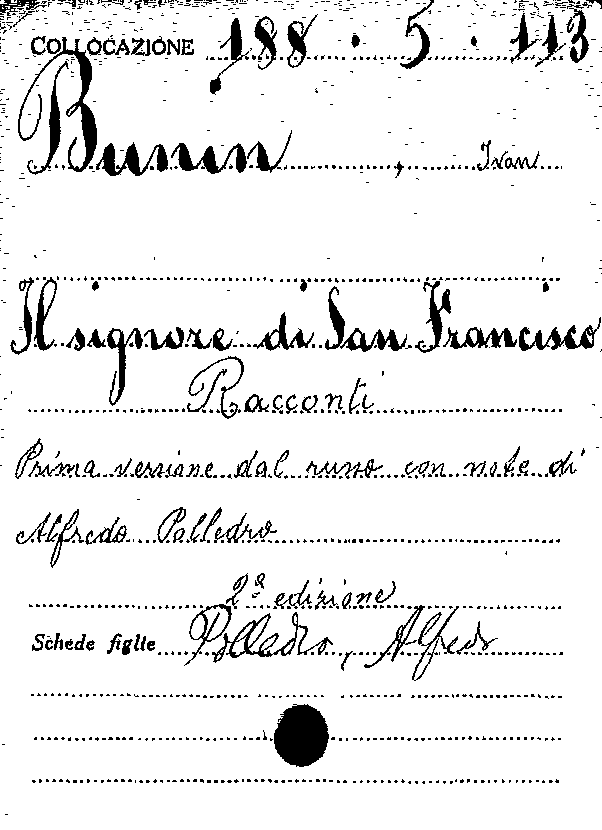 COLLOCAZIONE 188 · 5 · 113
Bunin, Ivan
Il signore di San Francisco
Racconti
Prima versione dal russo con note di
Alfredo Polledro
2ª edizione
Schede figlie Polledro, Alfredo